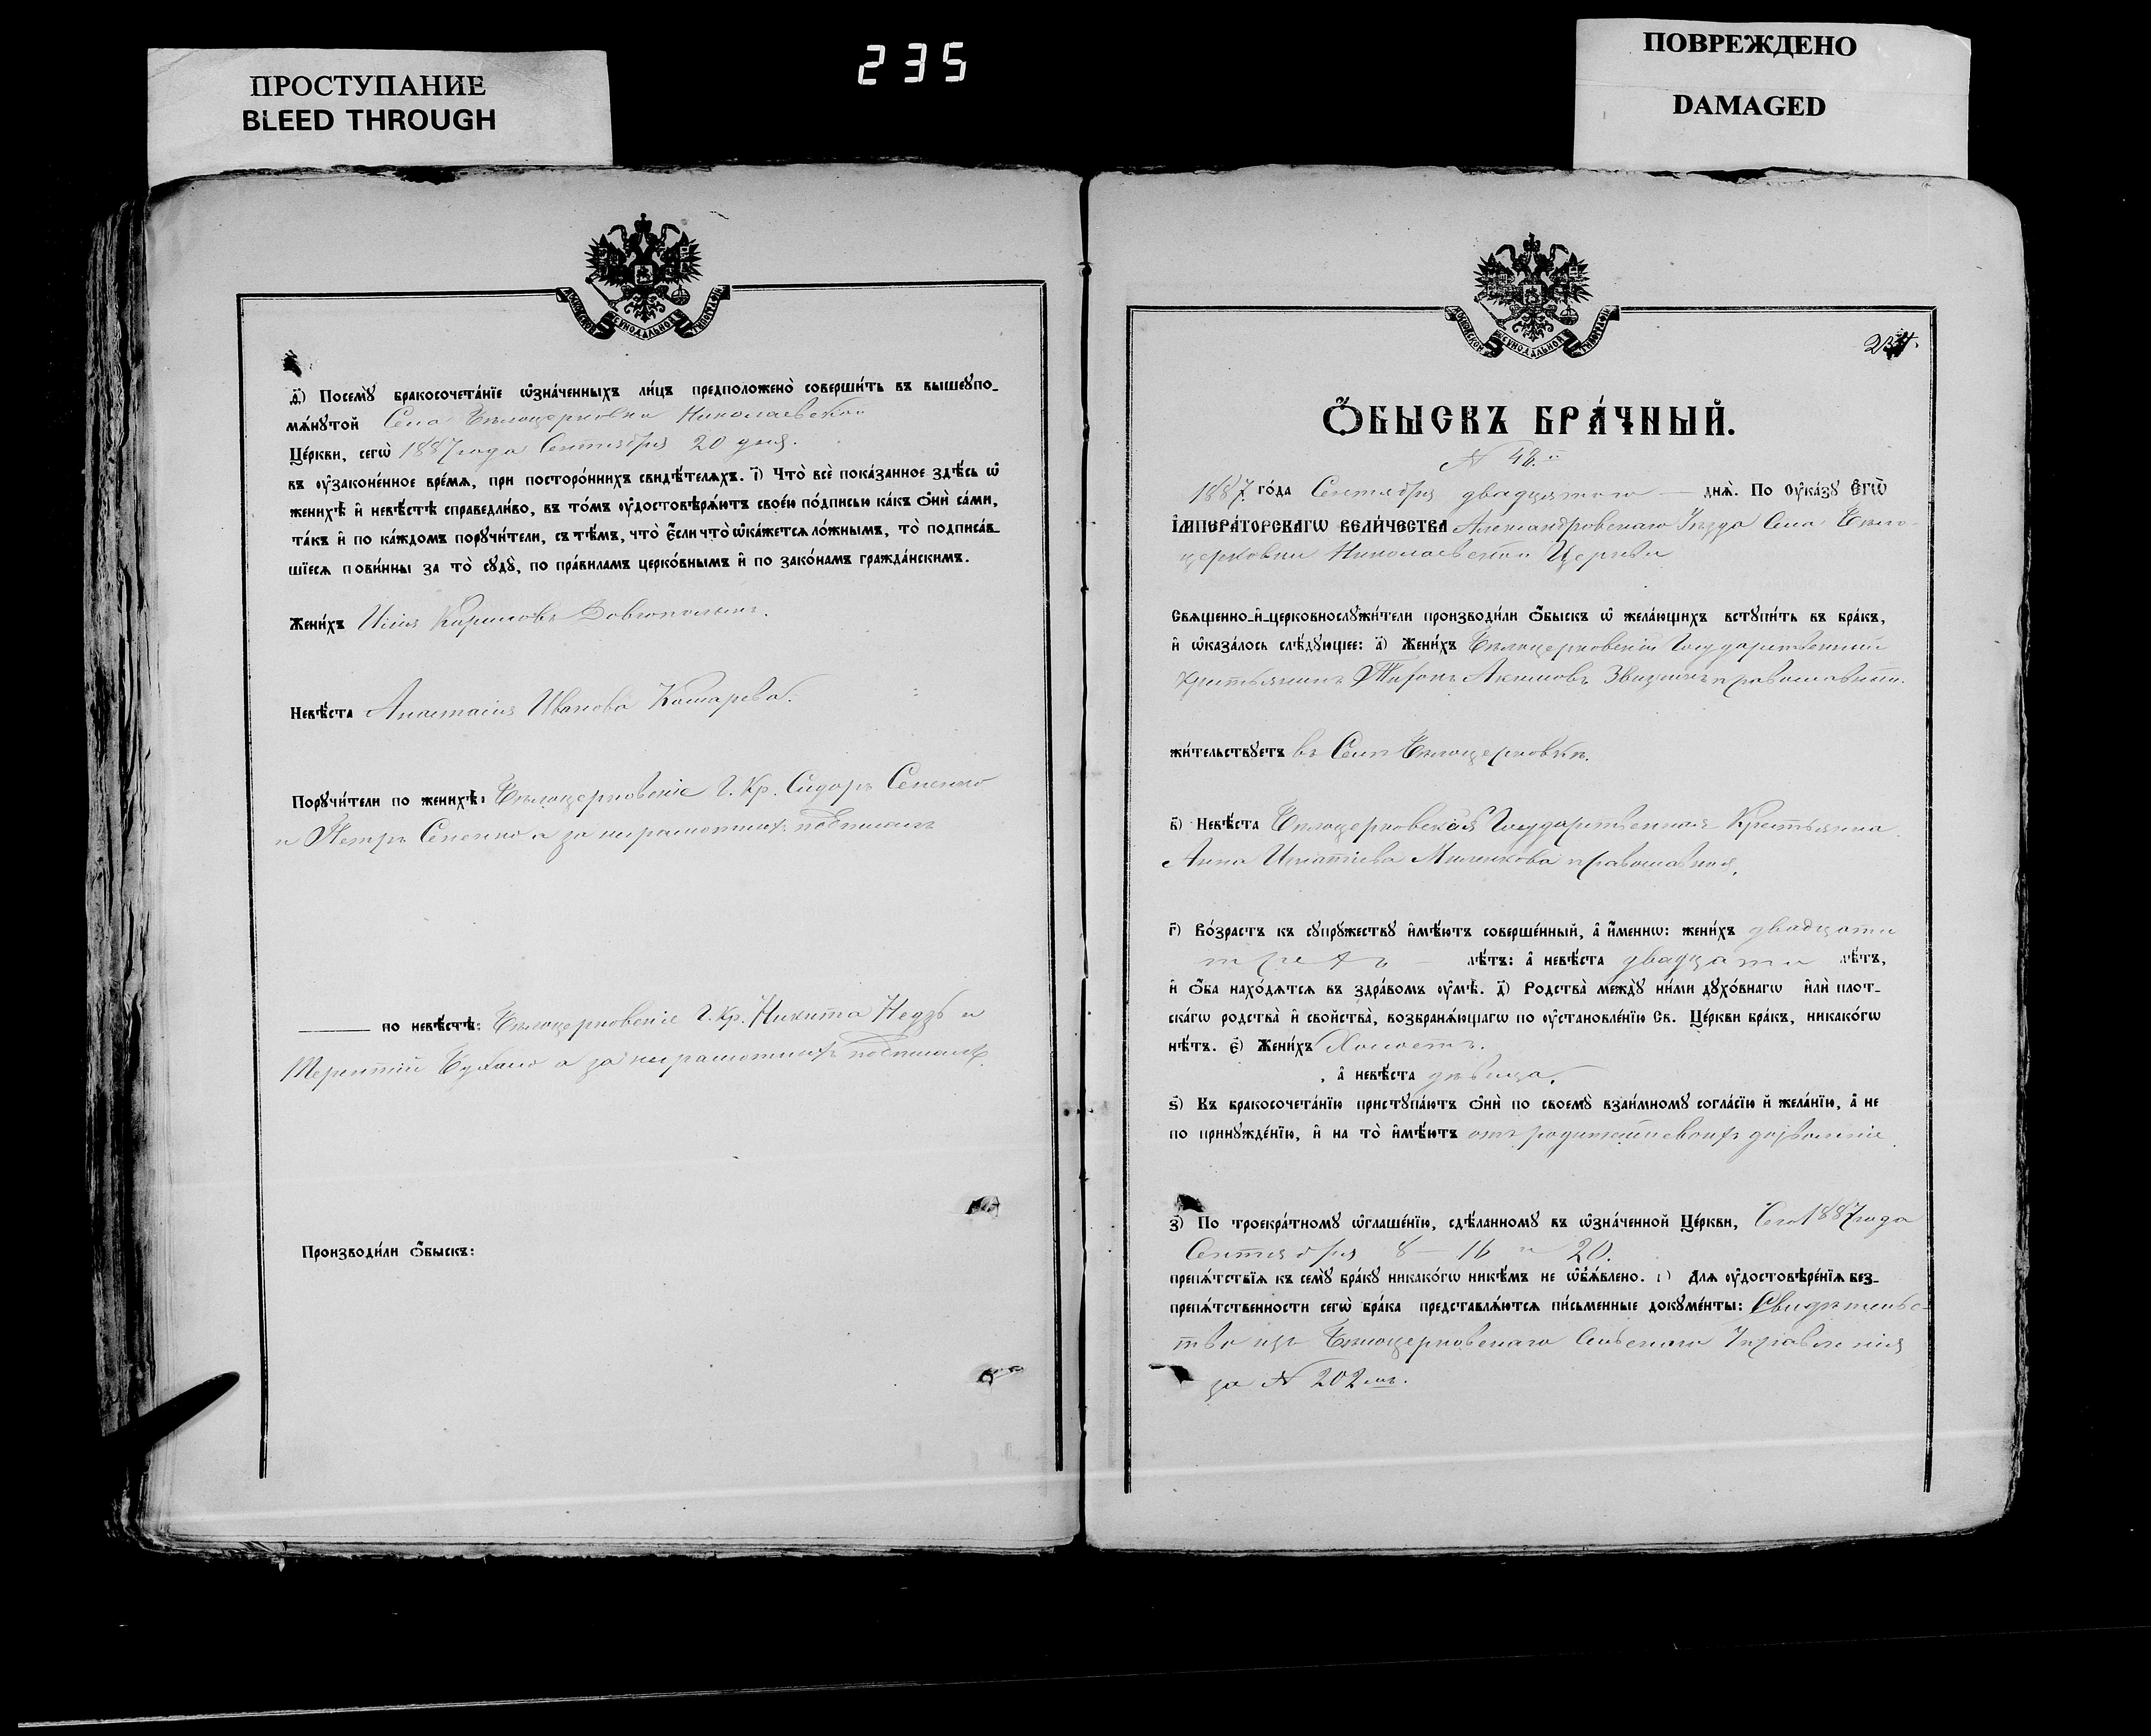 ПРОСТУПАНИЕ
BLEED THROUGH
235
ПОВРЕЖДЕНО
DAMAGED
МОСКОВСКОЙ СѴНОДАЛЬНОЙ ТИПОГРАФІИ
д҃) Посемꙋ̀ бракосочета́нїе ѡ҆зна́ченныхъ ли́цъ предположено̀ соверши́ть въ вышеꙋпо-
мѧ́нꙋтой Села Бѣлоцерковки Николаевской
Це́ркви, сегѡ̀ 1887 года Сентября 20 дня.
въ ᲂу҆зако́ненное вре́мѧ, при посторо́ннихъ свидѣ́телѧхъ. і҃) Что̀ всѐ пока́занное здѣ́сь ѡ҆
женихѣ̀ и҆ невѣ́стѣ справедли́во, въ то́мъ ᲂу҆достовѣрѧ́ютъ свое́ю по́дписью ка́къ ѻ҆нѝ са́ми,
та́къ и҆ по ка́ждомъ порꙋчи́тели, съ тѣ́мъ, что̀ є҆́сли что̀ ѡ҆ка́жетсѧ ло́жнымъ, то̀ подписа́в-
шїесѧ пови́нны за то̀ сꙋдꙋ̀, по пра́виламъ церко́внымъ и҆ по зако́намъ гражда́нскимъ.
Жени́хъ Илія Карповъ Довгополый.
Невѣ́ста Анастасія Иванова Комарева.
Порꙋчи́тели по женихѣ̀: Бѣлоцерковскіе Г. Кр. Сидоръ Сененко
и Петръ Сененко а за неграмотныхъ подписалъ
по невѣ́стѣ: Бѣлоцерковскіе Г. Кр. Никита Недзъ и
Терентій а за неграмотныхъ подписалъ
Производи́ли ѻ҆́быскъ:
МОСКОВСКОЙ СѴНОДАЛЬНОЙ ТИПОГРАФІИ
234.
Ѻ҆́БЫСКЪ БРА́ЧНЫЙ.
№ 48.
1887 го́да Сентября двадцатого днѧ̀. По ᲂу҆ка́зꙋ Є҆ГѠ̀
И҆МПЕРА́ТОРСКАГѠ ВЕЛИ́ЧЕСТВА Александровскаго Уѣзда Села Бѣло-
церковки Николаевской Церкви
Свѧще́нно-и҆-церковнослꙋжи́тели производи́ли ѻ҆́быскъ ѡ҆ жела́ющихъ встꙋпи́ть въ бра́къ,
и҆ ѡ҆каза́лось слѣ́дꙋющее: а҃) Жени́хъ Бѣлоцерковскій Государственный
Крестьянинъ Акимовъ православный.
жи́тельствꙋетъ въ Селѣ Бѣлоцерковкѣ.
в҃) Невѣ́ста Бѣлоцерковская Государственная Крестьянка
Анна Игнатіева Миленкова православная,
г҃) Во́зрастъ къ сꙋпрꙋ́жествꙋ и҆мѣ́ютъ соверше́нный, а҆ и҆́меннѡ: жени́хъ двадцати
трехъ лѣ́тъ: а҆ невѣ́ста двадцати лѣ́тъ,
и҆ ѻ҆́ба нахо́дѧтсѧ въ здра́вомъ ᲂу҆мѣ̀. д҃) Родства̀ ме́ждꙋ ни́ми дꙋхо́внагѡ и҆лѝ плот-
ска́гѡ родства̀ и҆ свойства̀, возбранѧ́ющагѡ по ᲂу҆становле́нїю Св. Це́ркви бра́къ, никако́гѡ
нѣ́тъ. є҃) Жени́хъ Холостъ.
, а҆ невѣ́ста дѣвица.
ѕ҃) Къ бракосочета́нїю пристꙋпа́ютъ ѻ҆нѝ по своемꙋ̀ взаи́мномꙋ согла́сїю и҆ жела́нїю, а҆ не
по принꙋжде́нїю, и҆ на то̀ и҆мѣ́ютъ отъ родителей своихъ дозволеніе
з҃) По троекра́тномꙋ ѡ҆глаше́нїю, сдѣ́ланномꙋ въ ѡ҆зна́ченной Це́ркви, Сего 1887 года
Сентября 8 – 16 и 20.
препѧ́тствїѧ къ семꙋ̀ бра́кꙋ никако́гѡ никѣ́мъ не ѡ҆б̾ѧ́влено. и҃) Длѧ ᲂу҆достовѣре́нїѧ без-
препѧ́тственности сегѡ̀ бра́ка представлѧ́ютсѧ пи́сьменные докꙋме́нты: Свидѣтельс-
тво изъ Бѣлоцерковскаго Сельскаго Управленія
за № 202мъ.